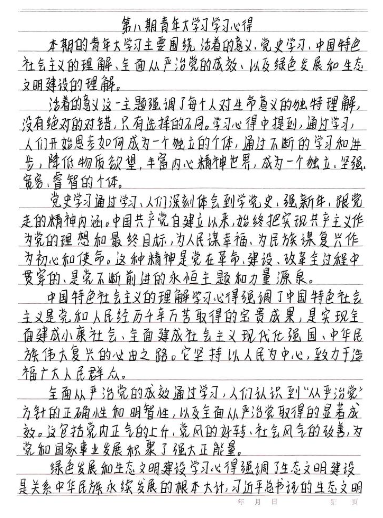 第八期青年大学习学习心得
本期的青年大学习主要围绕活着的意义、党史学习、中国特色
社会主义的理解、全面从严治党的成效、以及绿色发展和生态
文明建设的理解。
活着的意义这一主题强调了每个人对生命意义的独特理解,
没有绝对的对错,只有选择的不同。学习心得中提到,通过学习,
人们开始思考如何成为一个独立的个体,通过不断的学习和进
步,降低物质欲望,丰富内心精神世界,成为一个独立、坚强、
宽容、睿智的个体。
党史学习通过学习,人们深刻体会到学党史、强新年、跟党
走的精神内涵。中国共产党自建立以来,始终把实现共产主义作
为党的理想和最终目标,为人民谋幸福、为民族谋复兴作
为初心和使命。这种精神是党在革命、建设、改革全过程中
贯穿的,是党不断前进的永恒主题和力量源泉。
中国特色社会主义的理解学习心得强调了中国特色社会
主义是党和人民经历千辛万苦取得的宝贵成果,是实现全
面建成小康社会、全面建成社会主义现代化强国、中华民
族伟大复兴的必由之路。它坚持以人民为中心,致力于造
福广大人民群众。
全面从严治党的成效通过学习,人们认识到“从严治党”
方针的正确性和明智性,以及全面从严治党取得的显著成
效。这包括党内正气的上升,党风的好转、社会风气的改善,为
党和国家事业发展积聚了强大正能量。
绿色发展和生态文明建设学习心得强调了生态文明建设
是关系中华民族永续发展的根本大计,习近平总书记的生态文明
年 月 日